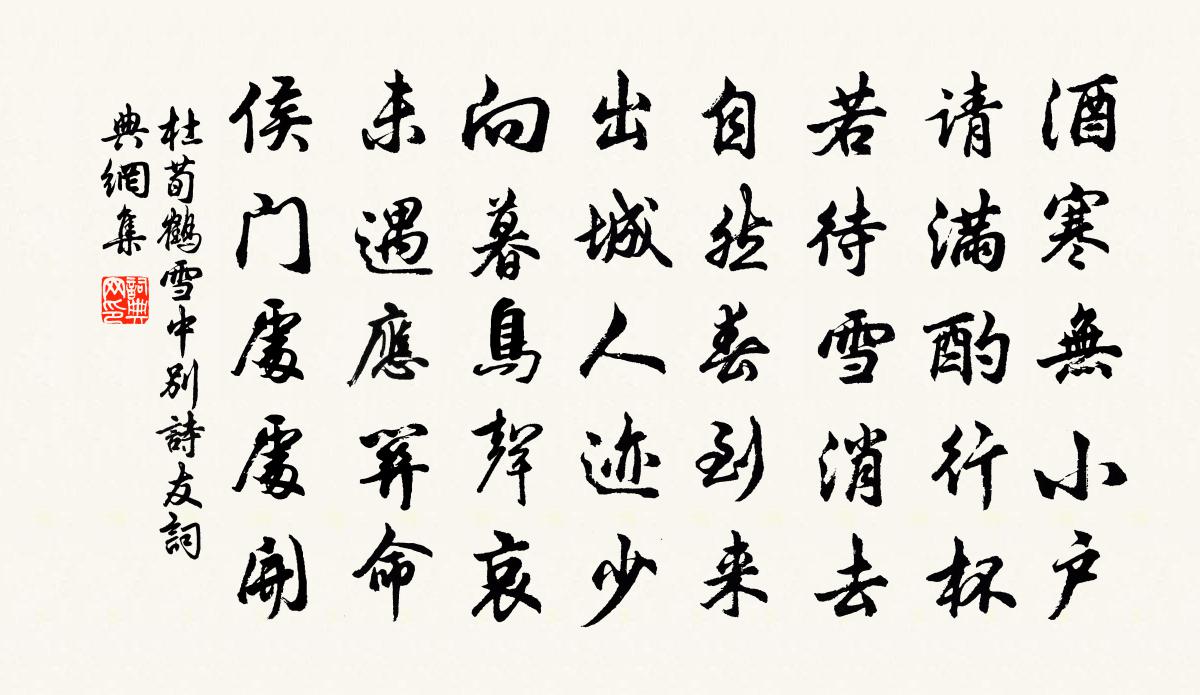 酒寒無小户
请满酌行杯
若待雪消去
自然春到来
出城人迹少
向暮鳥聲哀
未遇應關命
侯门處處開
杜荀鶴雪中别詩友詞
典網集
詞典网印